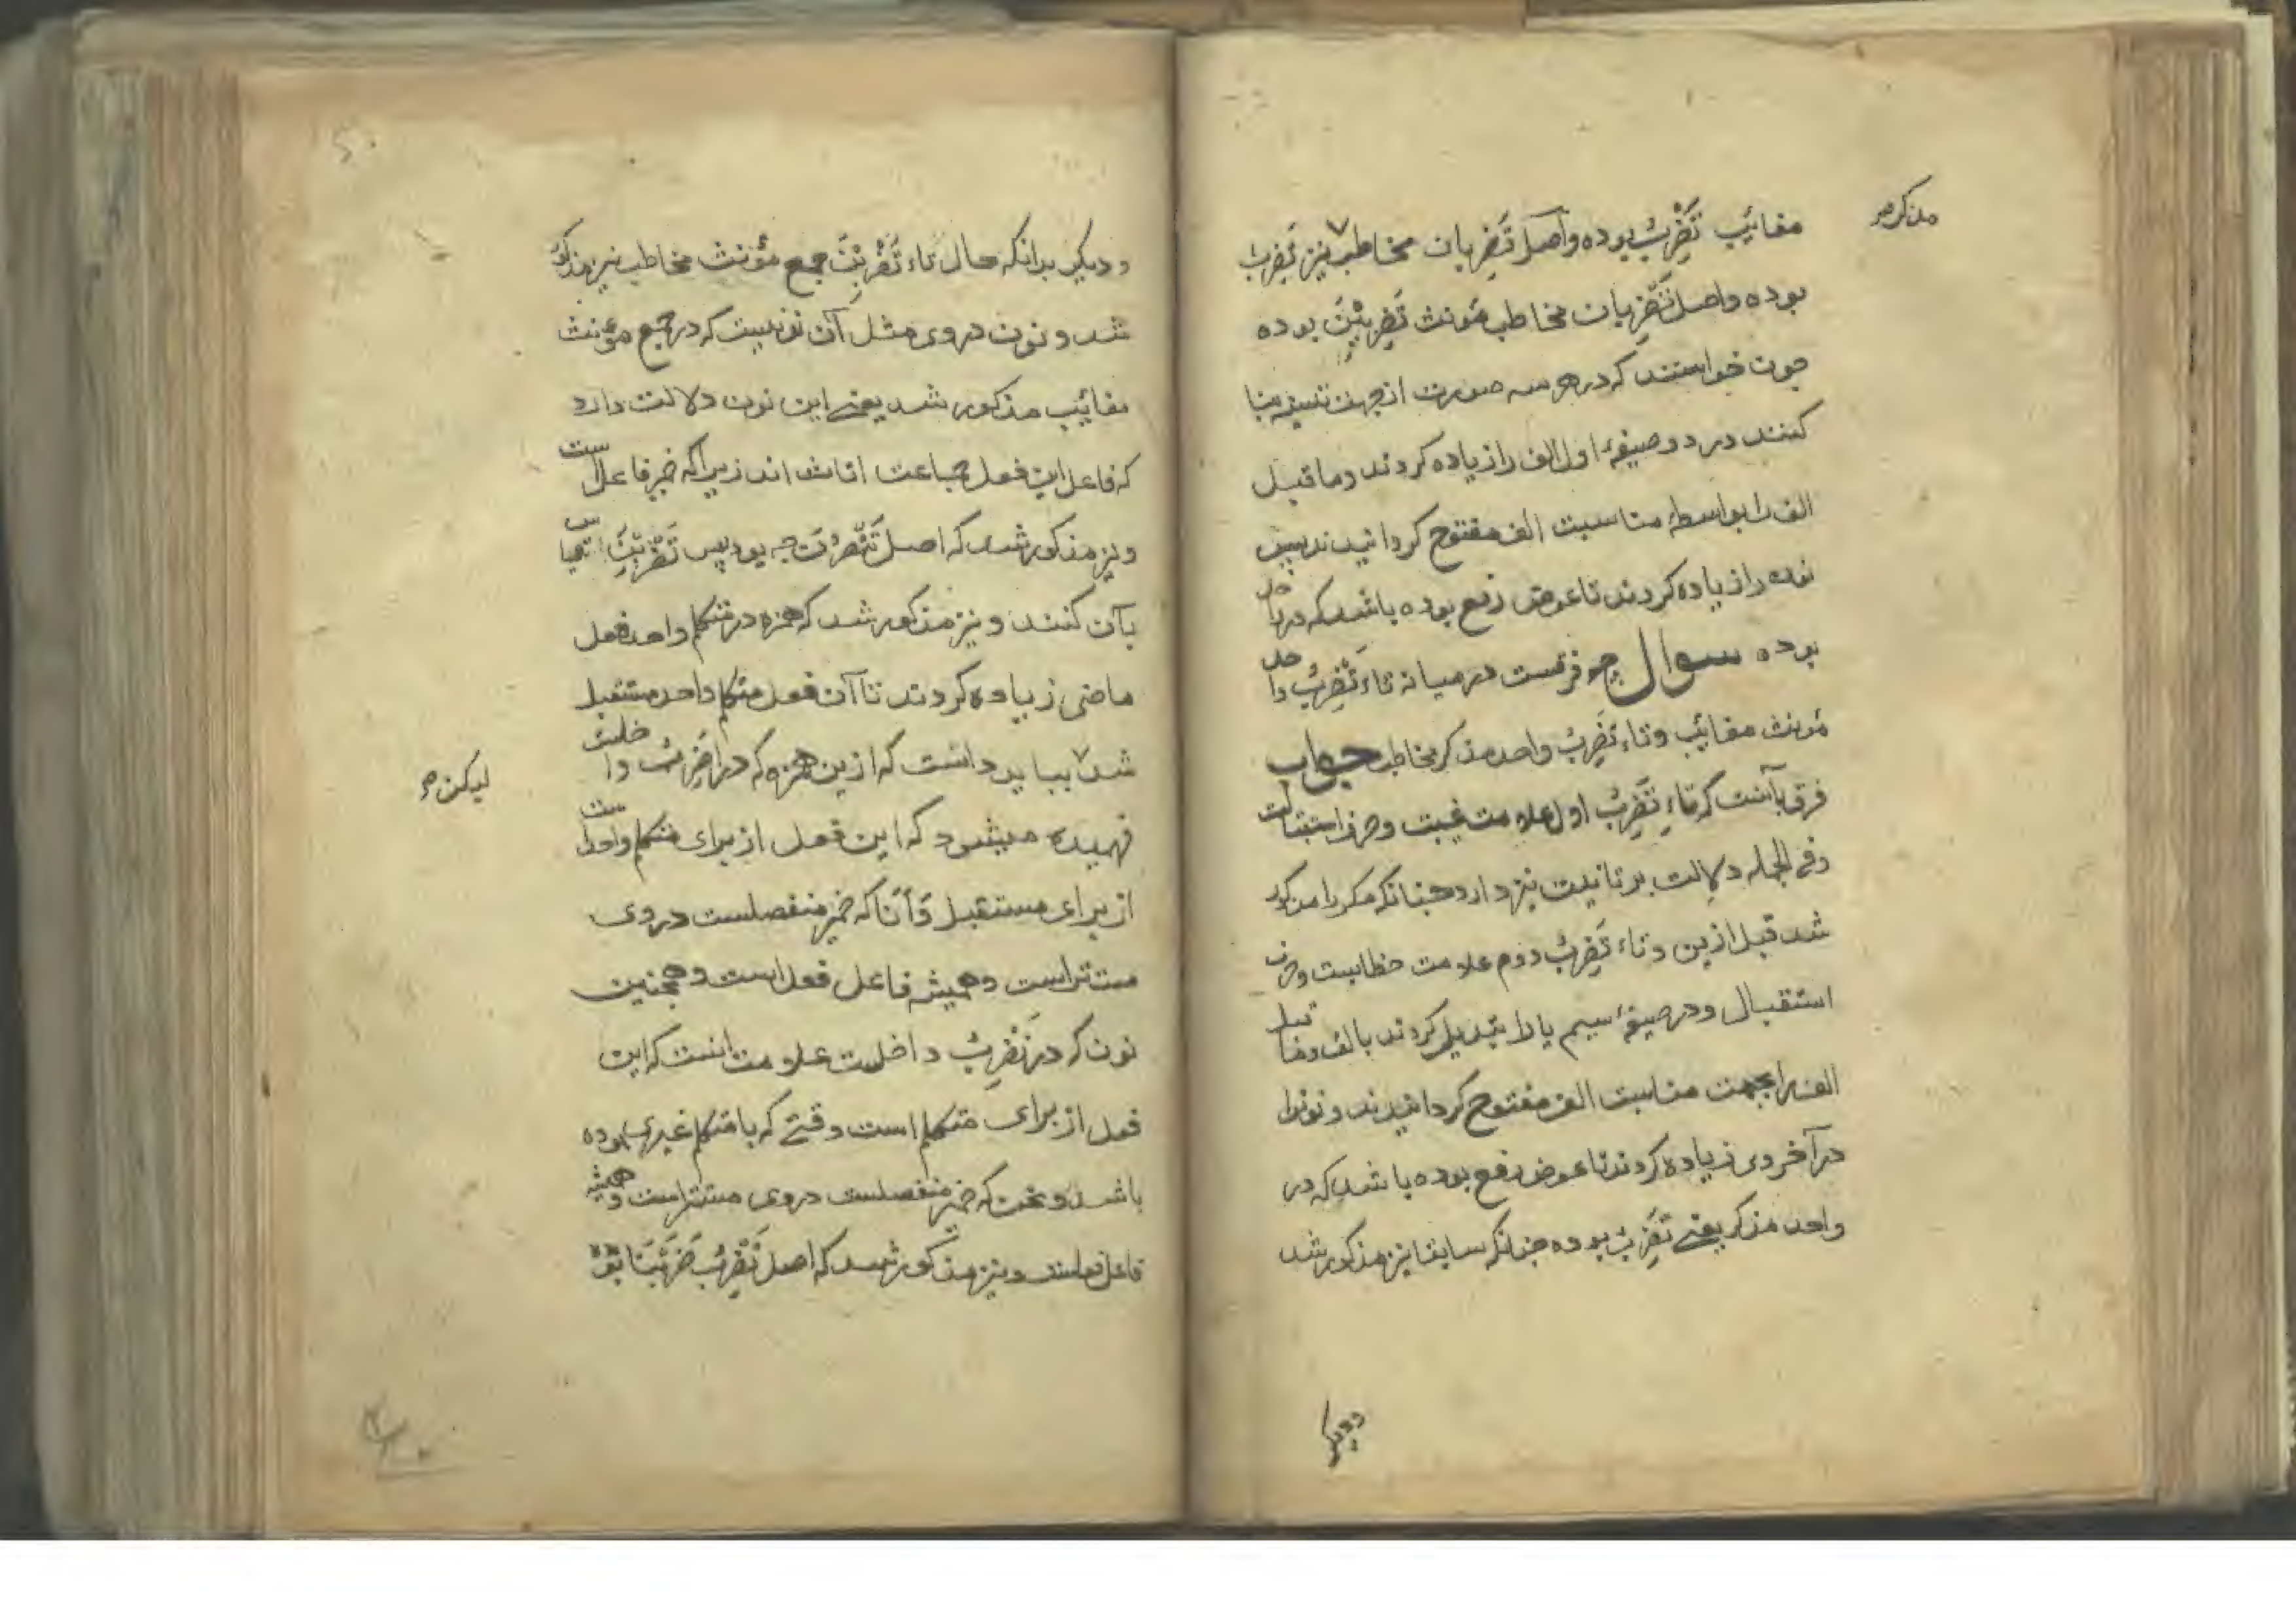 مذکر صح
مغائب تَضْرِبُ بوده واصل تَضربان مخاطب نیز تَضربُ
بوده واصل تَضربان مخاطب مؤنث تَضربینَ بوده
چون خواستند که در هر سه صورت از جهت تثنیه بنا
کنند در دو صیغهٔ اول الف را زیاده کردند وماقبل
الف را بواسطهٔ مناسبت الف مفتوح کردانیدند پس
نون را زیاده کردند تا عوض رفع بوده باشد که در واحد
بوده سوال چه فرقست در میانه تاء تَضْرِبُ واحد
مؤنث مغائب وتاء تَضربُ واحد مذکر مخاطب جواب
فرق بآنست که تاء تَضربُ اول علامت غیبت وحرف استقبالست
وفی الجمله دلالت بر تانیث نیز دارد چنانکه مکررا مذکور
شد قبل ازین وتاء تَضربُ دوم علامت خطابست وحرف
استقبال ودر صیغهٔ سیم یا را تبدیل کردند بالف وماقبل
الف را بجهت مناسبت الف مفتوح کردانیدند ونونرا
در آخر وی زیاده کردند تا عوض رفع بوده باشد که در
واحد مذکر یعنی تَضربُ بوده چنانکه سابقا نیز مذکور شد
ودیکر
ودیکر بدانکه حال تاء تَضْرِبْنَ جمع مؤنث مخاطب نیز مذکور
شد ونون در وی مثل آن نونیست که در جمع مؤنث
مغائب مذکور شد یعنی این نون دلالت دارد
که فاعل این فعل جماعت اناث اند زیراکه ضمیر فاعل است
ونیز مذکور شد که اصل تَنْصُرْنَ چه بود پس تَضْرِبْنَ را قیاس
بآن کنند ونیز مذکور شد که همزه در متکلم واحد فعل
ماضی زیاده کردند تا آن فعل متکلم واحد مستقبل
شد بباید دانست که ازین همزه که در اَضربُ داخلست
لیکن صح
فهمیده میشود که این فعل از برای متکلم واحد است
از برای مستقبل وَاَنَا که ضمیر منفصلست در وی
مستتر است وهمیشه فاعل فعل است وهمچنین
نون که در نَضْرِبُ داخلست علامت انست که این
فعل از برای متکلم است وقتی که با متکلم غیری بوده
باشد ونحن که ضمیر منفصلست در وی مستتر است وهمیشه
فاعل فعلست ونیز مذکور شد که اصل نَضْرِبُ ضَرَبْنَا بوده